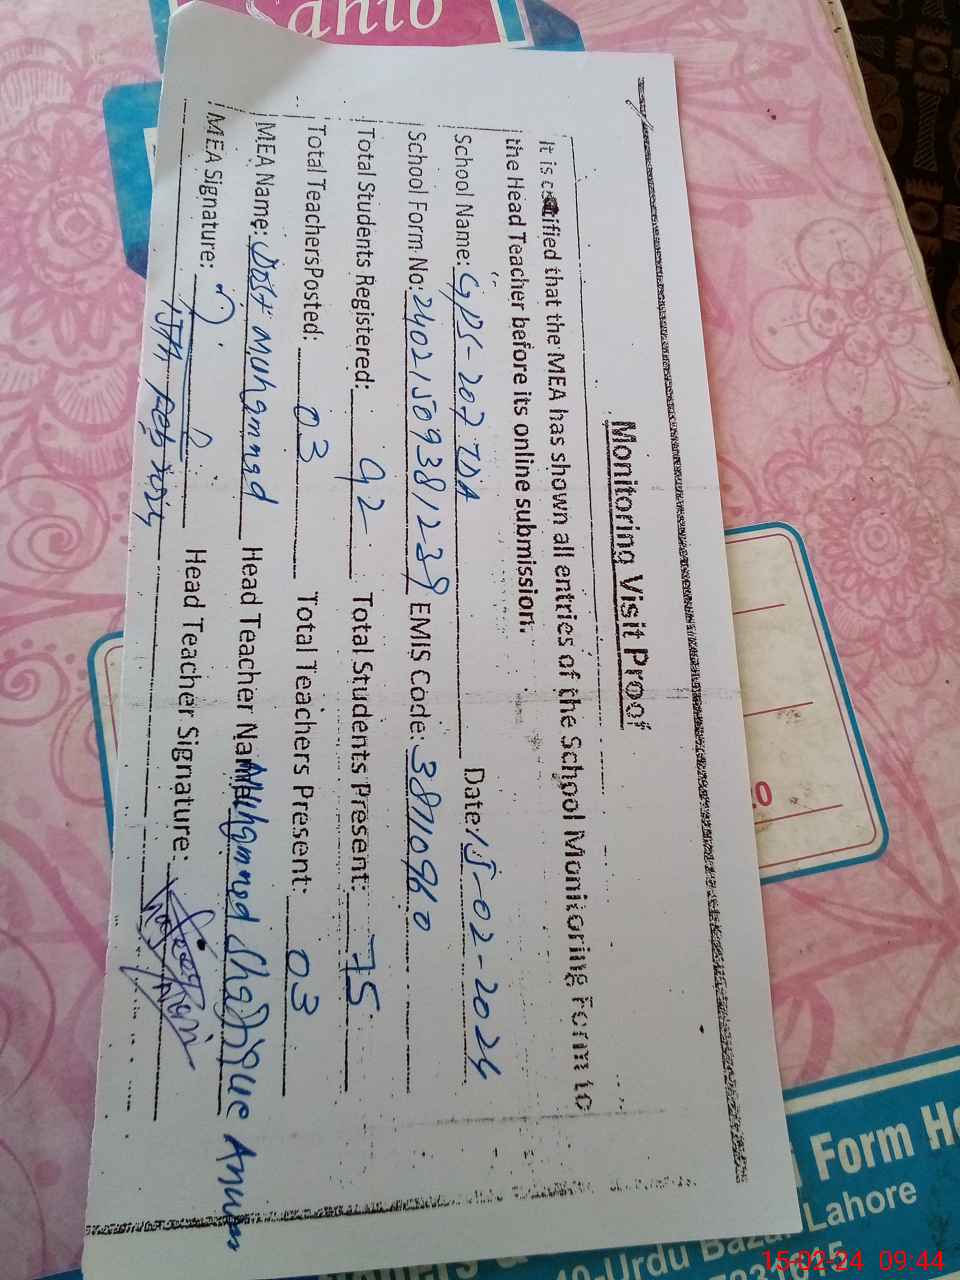 Sahib
Monitoring Visit Proof
It is certified that the MEA has shown all entries of the School Monitoring Form to
the Head Teacher before its online submission.
School Name: GPS-207 TDA Date: 15-02-2024
School Form No: 24021509381239 EMIS Code: 38710960
Total Students Registered: 92 Total Students Present: 75
Total Teachers Posted: 03 Total Teachers Present: 03
MEA Name: Dost Muhammad Head Teacher Name Muhammad Shafique
MEA Signature: Head Teacher Signature:
15th Feb 2024
Form
Lahore
40-Urdu Bazar
15-02-24 09:44